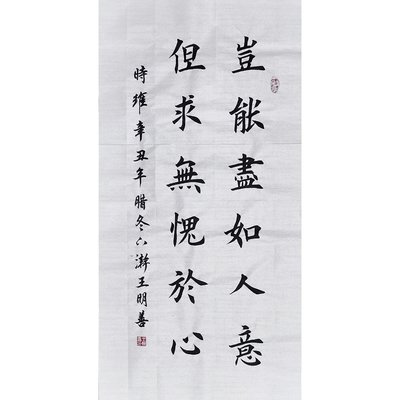 豈能盡如人意
但求無愧於心
時維辛丑年腊冬六澣王明善